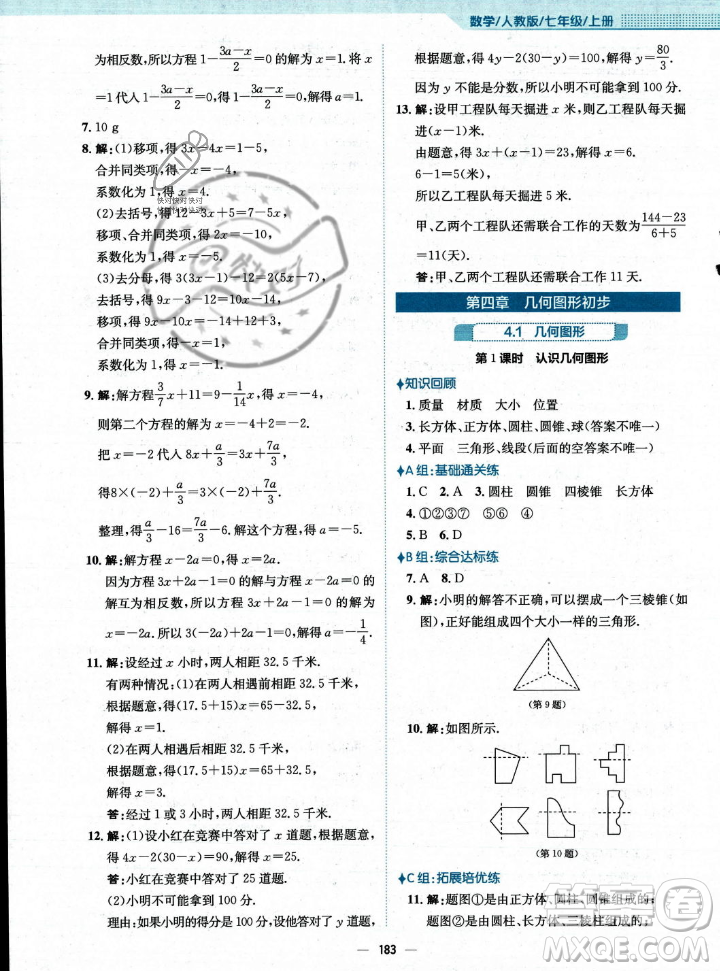 数学/人教版/七年级/上册
为相反数,所以方程 1-(3a-x)/2=0的解是x=1.将 x
=1代入 1-(3a-x)/2=0,得 1-(3a-1)/2=0,解得 a=1.
7. 10 g
8. 解:(1)移项,得 3x-4x=1-5,
合并同类项,得 -x=-4,
系数化为 1,得 x=4.
(2)去括号,得 12-3x+5=7-5x,
移项、合并同类项,得 2x=-10,
系数化为 1,得 x=-5.
(3)去分母,得
移项、合并同类项,得
系数化为 1,得
9. 解:解方程 3/7x+11=9-1/14x,得 x=-4,
则第二个方程的解为 x=-4+2=-2.
把 x=-2代入 8x-a/2=
得8×(-2)-a/2=
整理,得a/3-16=7a/2-6.解这个方程,得 a=-5.
10. 解:解方程 x-2a=0,得 x=2a.
因为方程 3x+2a-1=0 的解与方程 x-2a=0 的
解互为相反数,所以方程 3x+2a-1=0 的解为
x=-2a.所以 3×(-2a)+2a-1=0.解得 a=-1/4.
11. 解:设经过 x 时,两人相距 32.5 千米.
有两种情况:(1)在两人相遇前相距 32.5 千米.
根据题意,得(17.5+15)x=
(2)在两人相遇后相距 32.5 千米.
根据题意,得(17.5+15)x=
解得 x=3.
答:经过 1 时或 3 时,两人相距 32.5 千米.
12. 解:(1)设小红在竞赛中答对了 x 道题,根据题意,
得 4x-2(30-x)=90.解得 x=25.
答:小红在竞赛中答对了 25 道题.
(2)小明不可能拿到 100 分.
理由:如果小明的得分是 100 分,设他答对了 y 道题,
根据题意,得 4y-2(30-y)=100.解得 y=80/3.
因为 y 不能是分数,所以小明不可能拿到 100 分.
13. 解:设甲工程队每天掘进 x 米,则乙工程队每天掘进
(x-1)米.
由题意,得 3x+(x-1)=23.解得 x=6.
6-1=5(米).
所以乙工程队每天掘进 5 米.
甲、乙两个工程队还需联合工作的天数为(144-23)/(6+5)
=11(天).
答:甲、乙两个工程队还需联合工作 11 天.
第四章 几何图形初步
4.1 几何图形
第 1 课时 认识几何图形
知识回顾
1. 质量 材质 大小 位置
3. 长方体、正方体、圆柱、圆锥、球(答案不唯一)
4. 平面 三角形、线段(后面的空答案不唯一)
A 组:基础通关练
1. C 2. A 3. 圆柱 圆锥 四棱锥 长方体
4. ①②⑦⑧ ⑤⑥ ④
B 组:综合达标练
7. A 8. D
9. 解:小明的解答不正确,可以摆成一个三棱锥(如
图),正好能组成四个大小一样的三角形.
(第 9 题)
10. 解:如图所示.
(第 10 题)
C 组:拓展培优练
11. 解:题图①是由正方体、圆柱、圆锥组成的.
题图②是由长方体、圆柱、三棱柱组成的.
183
快对快对快对
作业精灵
MXQE.COM